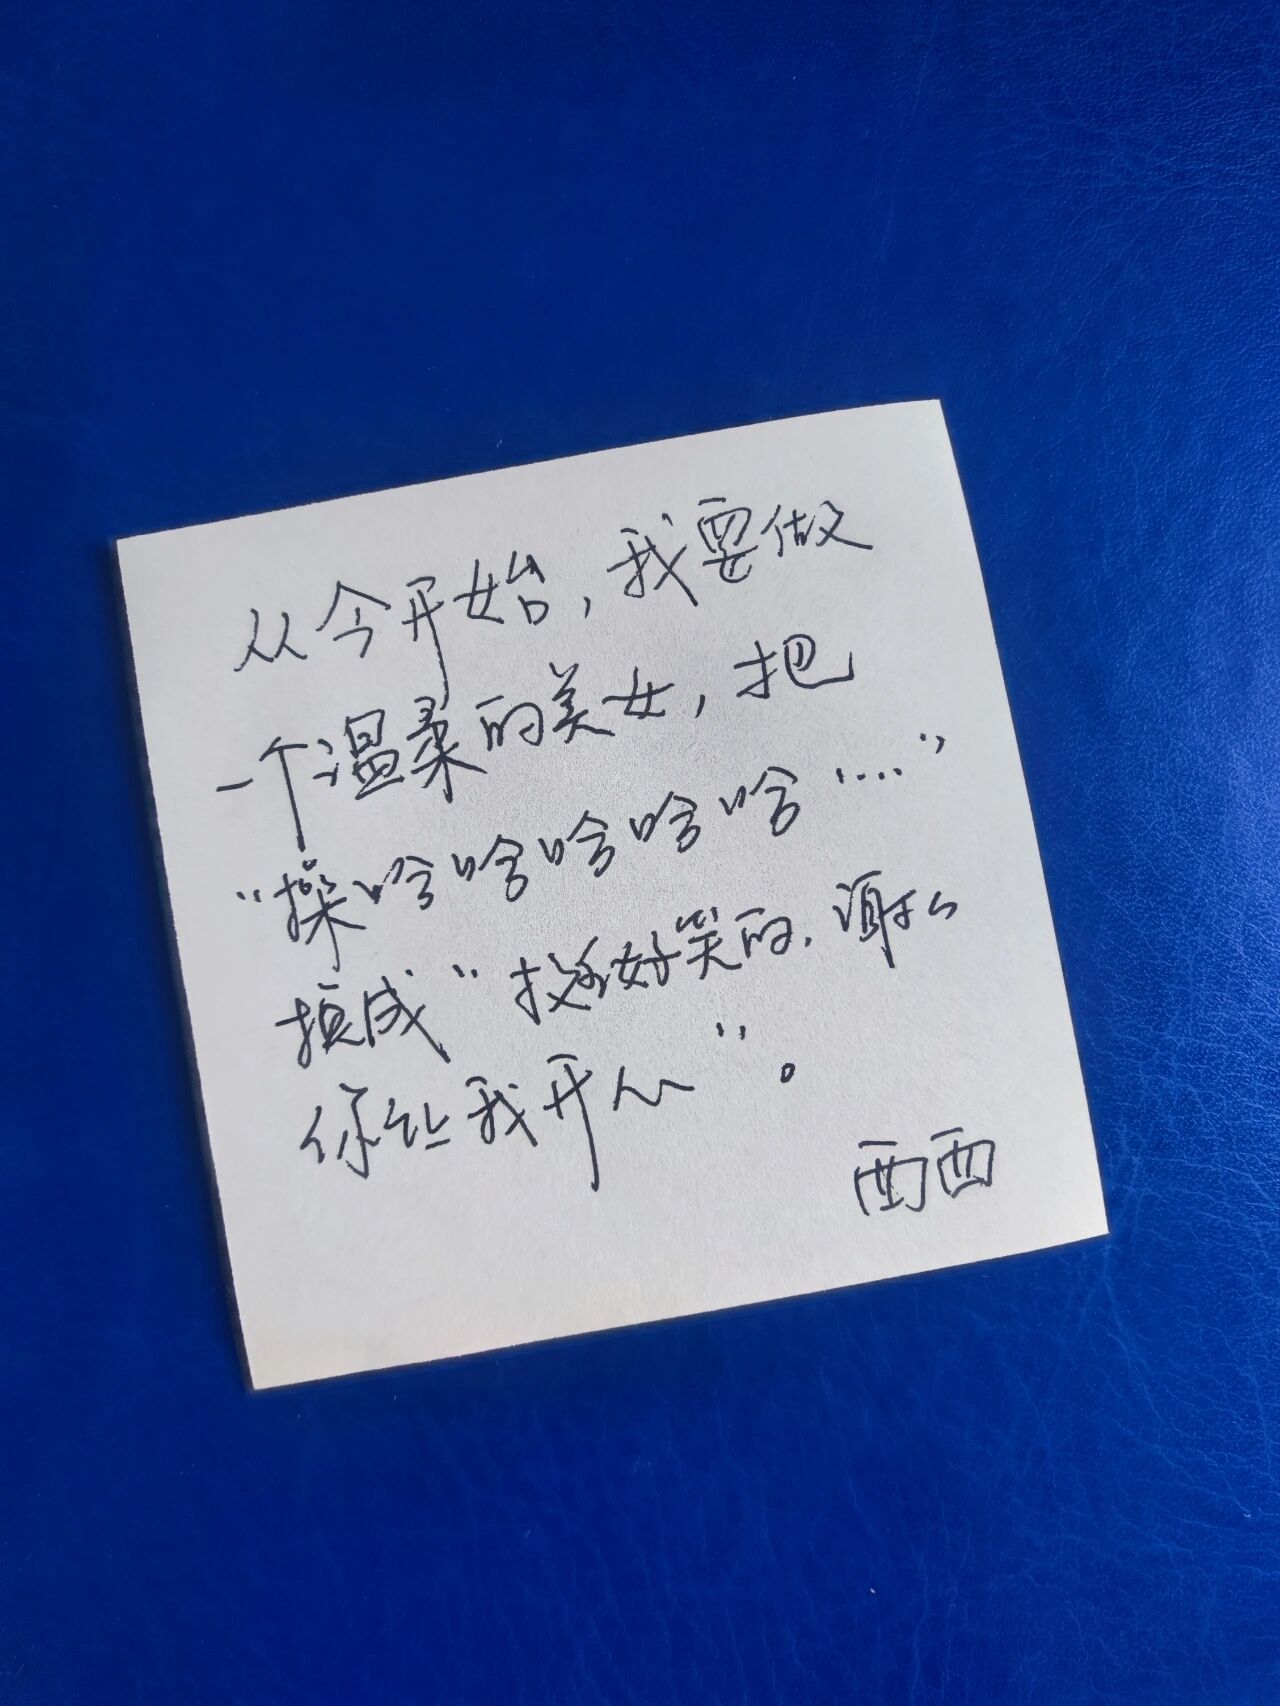 从今开始，我要做
一个温柔的美女，把
“操哈哈哈哈哈……”
换成“挺好笑的，谢谢
你让我开心”。
西西